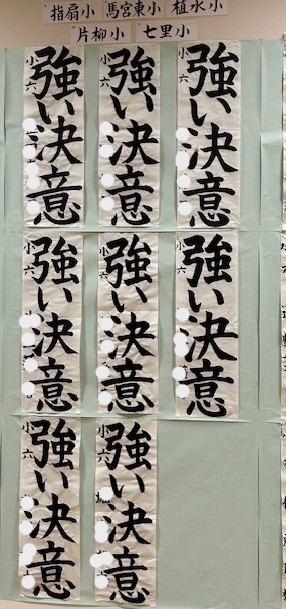 指扇小 馬宮東小 植水小
片柳小 七里小
強い決意
小六
強い決意
小六
強い決意
小六
強い決意
小六
強い決意
小六
強い決意
小六
強い決意
小六
強い決意
小六